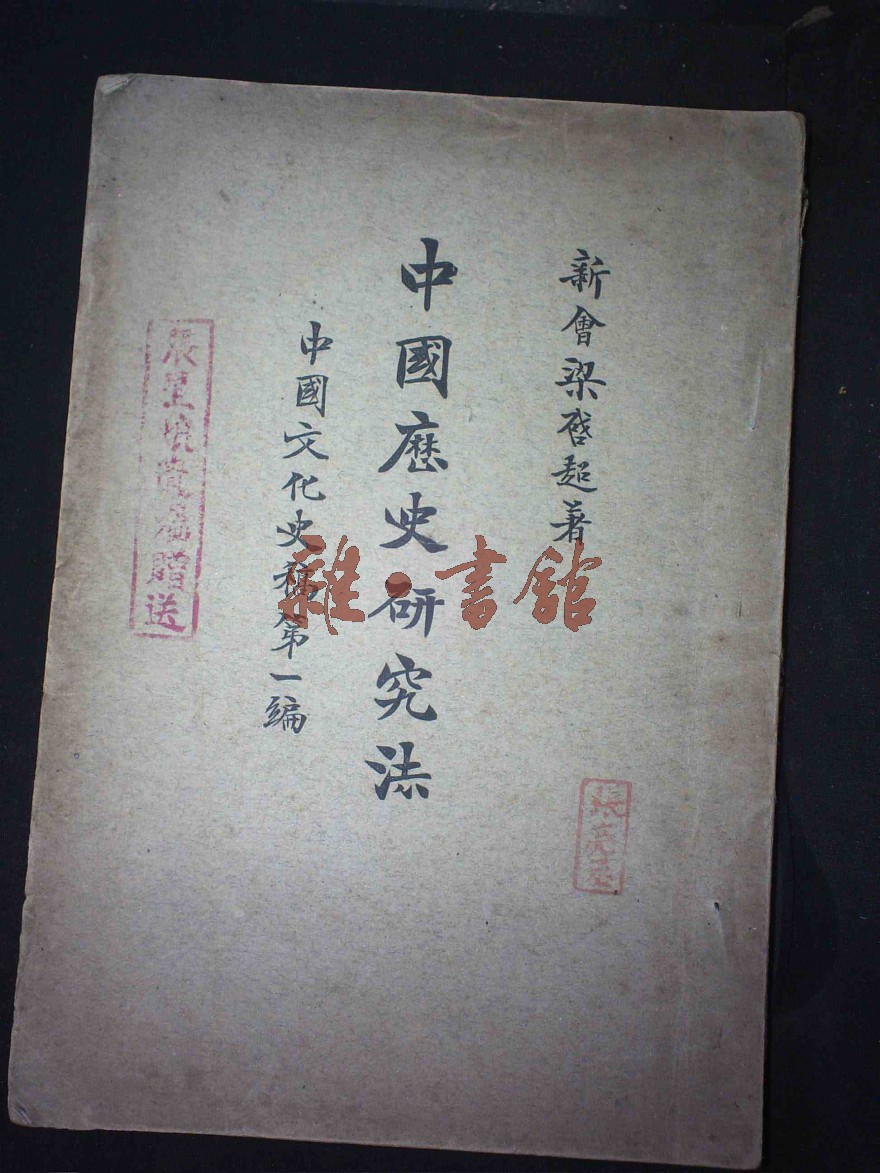 新會梁啓超著
中國歷史研究法
中國文化史稿第一編
雜·書館